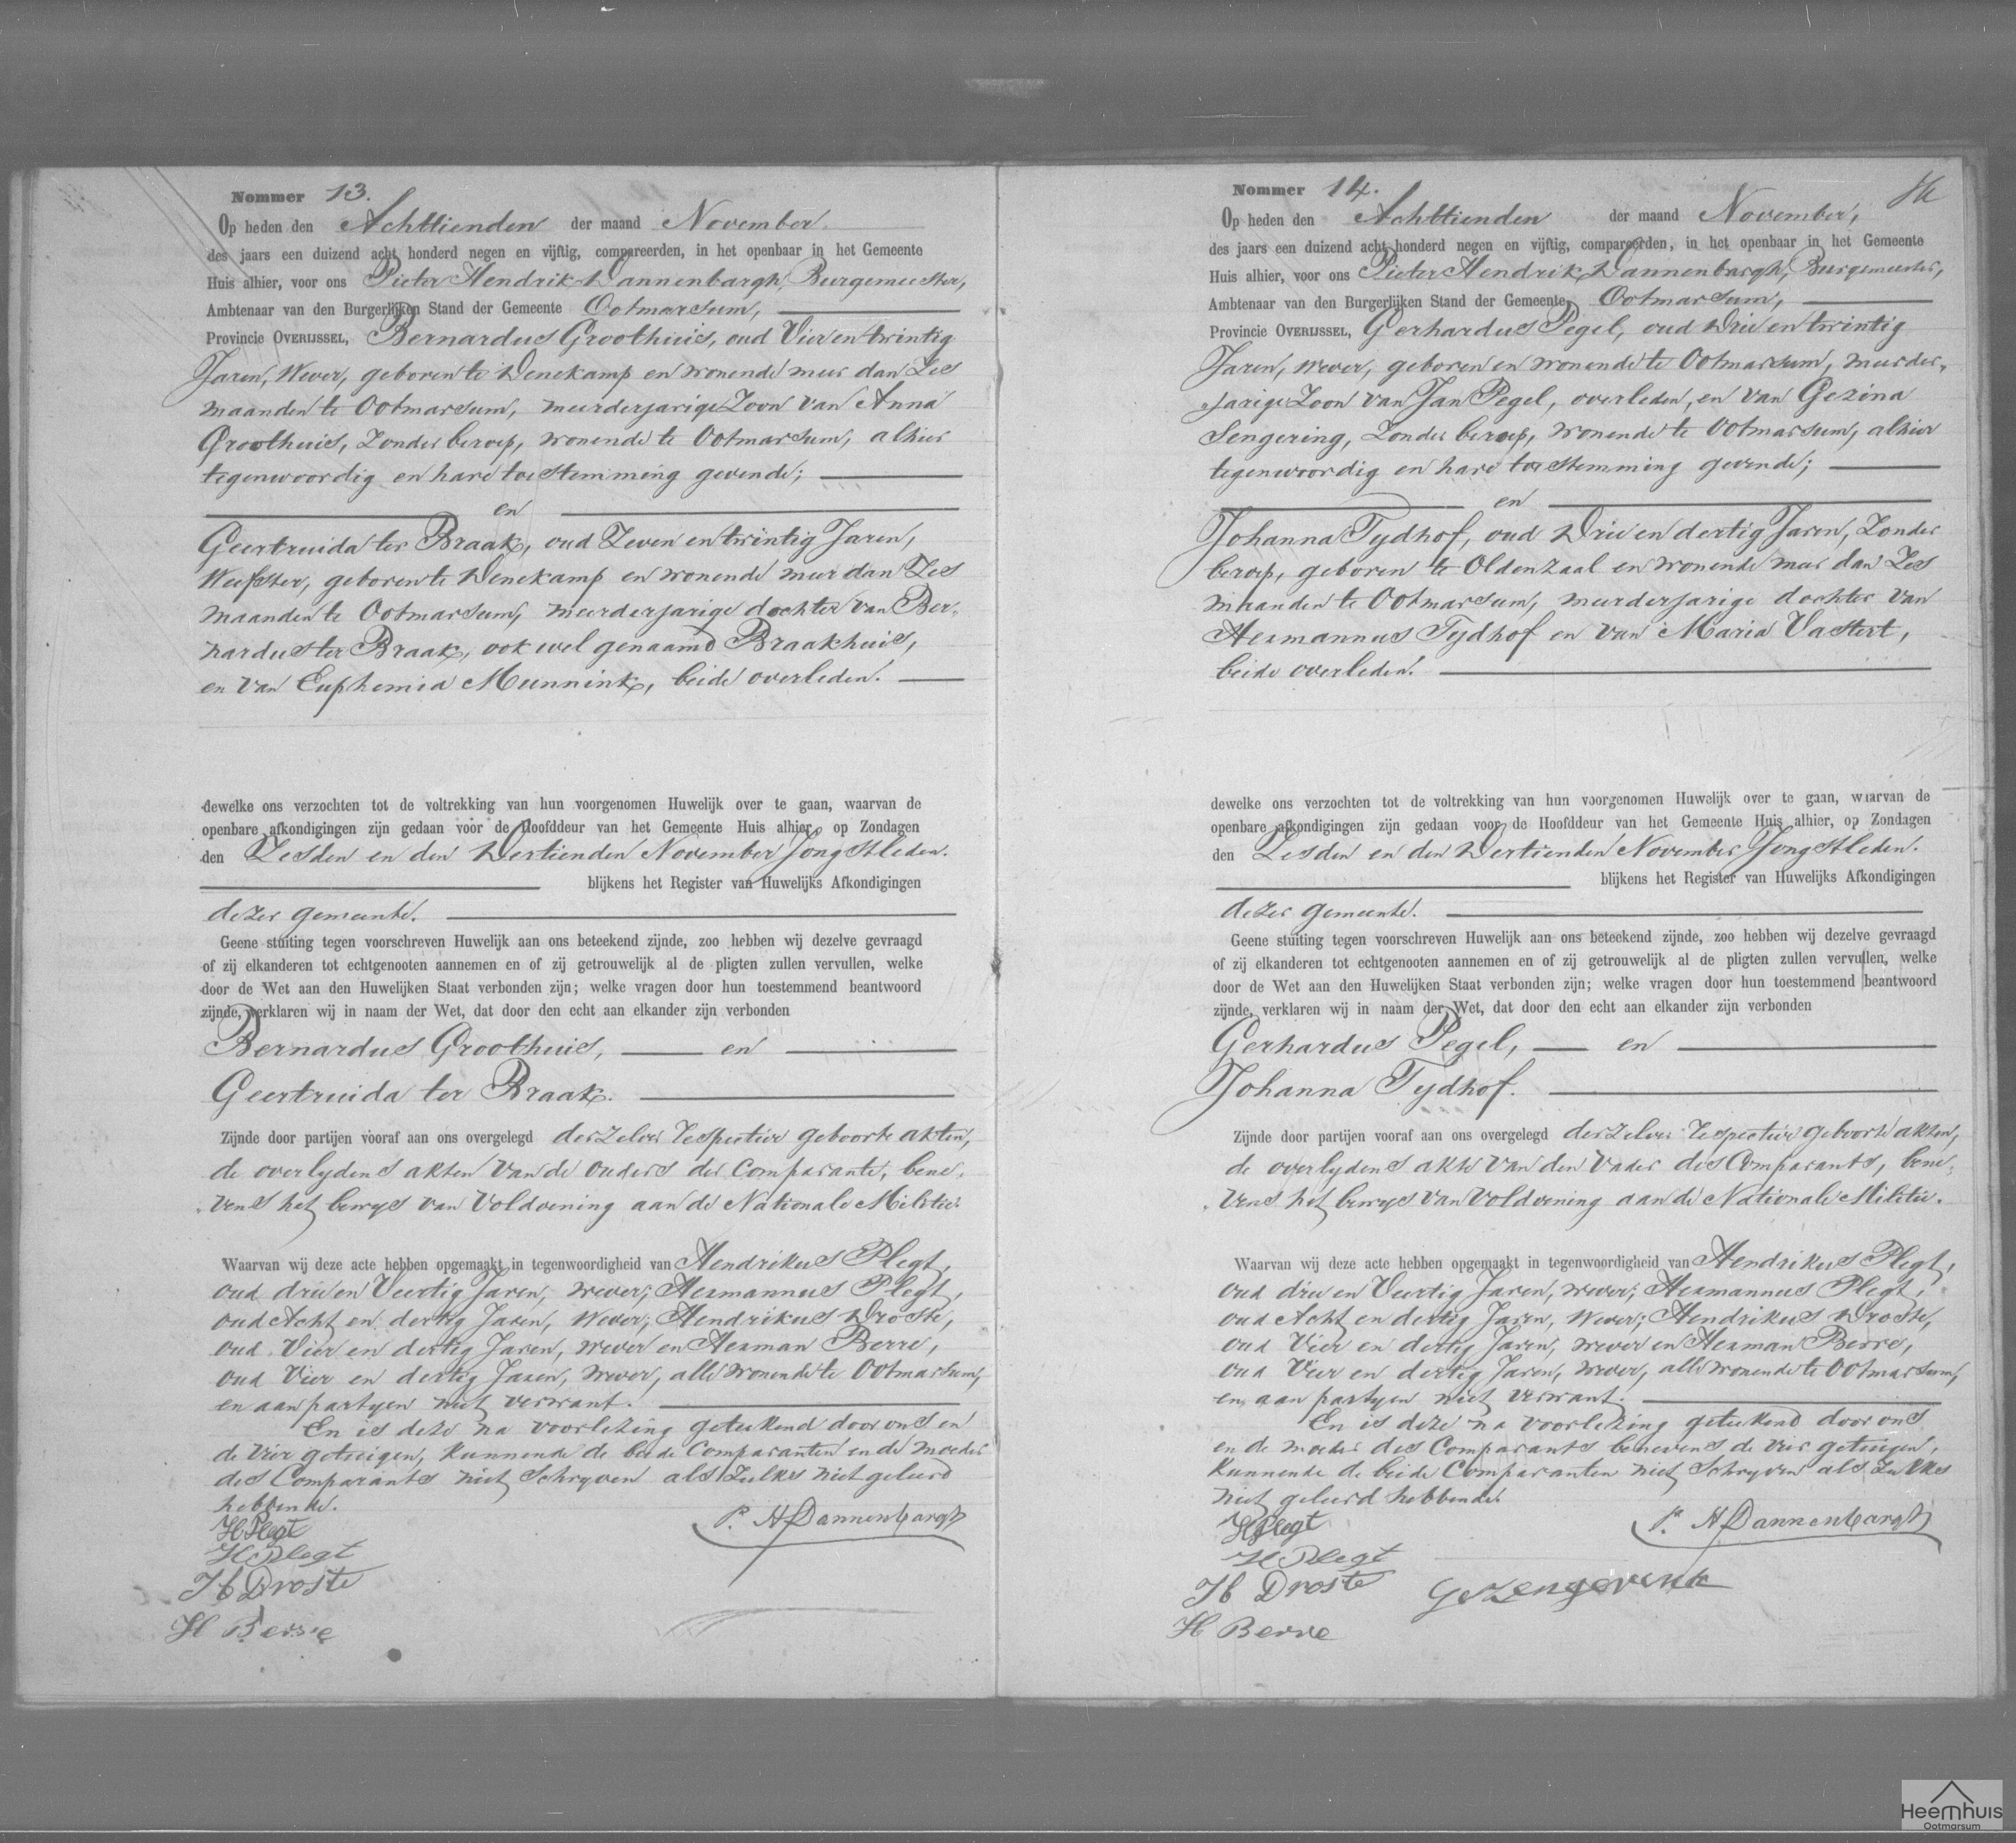 Nommer 13.
Op heden den Achttienden der maand November
des jaars een duizend acht honderd negen en vijftig, compareerden, in het openbaar in het Gemeente
Huis alhier, voor ons Pieter Hendrik Dannenbargh, Burgemeester,
Ambtenaar van den Burgerlijken Stand der Gemeente Ootmarsum,
Provincie OVERIJSSEL, Bernardus Groothuis, oud Vier en twintig
Jaren, Wever, geboren te Denekamp en wonende meer dan Zes
maanden te Ootmarsum, meerderjarige Zoon van Anna
Groothuis, Zonder beroep, wonende te Ootmarsum, alhier
tegenwoordig en hare toestemming gevende;
en
Geertruida ter Braak, oud Zeven en twintig Jaren,
Weefster, geboren te Denekamp en wonende meer dan Zes
maanden te Ootmarsum, meerderjarige dochter van Ber-
nardus ter Braak, ook wel genaamd Braakhuis,
en van Euphemia Munnink, beide overleden.
dewelke ons verzochten tot de voltrekking van hun voorgenomen Huwelijk over te gaan, waarvan de
openbare afkondigingen zijn gedaan voor de Hoofddeur van het Gemeente Huis alhier, op Zondagen
den Zesden en den Dertienden November Jongstleden.
blijkens het Register van Huwelijks Afkondigingen
dezer gemeente.
Geene stuiting tegen voorschreven Huwelijk aan ons beteekend zijnde, zoo hebben wij dezelve gevraagd
of zij elkanderen tot echtgenooten aannemen en of zij getrouwelijk al de pligten zullen vervullen, welke
door de Wet aan den Huwelijken Staat verbonden zijn; welke vragen door hun toestemmend beantwoord
zijnde, verklaren wij in naam der Wet, dat door den echt aan elkander zijn verbonden
Bernardus Groothuis, en
Geertruida ter Braak.
Zijnde door partijen vooraf aan ons overgelegd derzelver respective geboorte akten,
de overlydens akten van de ouders der Comparante, bene-
vens het bewys van Voldoening aan de Nationale Militie.
Waarvan wij deze acte hebben opgemaakt in tegenwoordigheid van Hendrikus Plegt,
oud drie en Veertig Jaren, wever; Hermannus Plegt,
oud Acht en dertig Jaren, Wever; Hendrikus Droste,
oud Vier en dertig Jaren, wever en Herman Berre,
oud Vier en dertig Jaren, wever, alle wonende te Ootmarsum,
en aan partyen niet verwant.
En is deze na voorlezing geteekend door ons en
de vier getuigen, kunnende de beide Comparanten en de moeder
des Comparants niet Schryven als Zulks niet geleerd
hebbende.
P. H Dannenbargh
H Plegt
H Plegt
H Droste
H Berre
Nommer 14.
Op heden den Achttienden der maand November,
des jaars een duizend acht honderd negen en vijftig, compareerden, in het openbaar in het Gemeente
Huis alhier, voor ons Pieter Hendrik Dannenbargh, Burgemeester,
Ambtenaar van den Burgerlijken Stand der Gemeente Ootmarsum,
Provincie OVERIJSSEL, Gerhardus Pegel, oud Drie en twintig
Jaren, wever, geboren en wonende te Ootmarsum, meerder-
jarige Zoon van Jan Pegel, overleden, en van Gezina
Sengering, Zonder beroep, wonende te Ootmarsum, alhier
tegenwoordig en hare toestemming gevende;
en
Johanna Tydhof, oud Drie en dertig Jaren, Zonder
beroep, geboren te Oldenzaal en wonende meer dan Zes
maanden te Ootmarsum, meerderjarige dochter van
Hermannus Tydhof en van Maria Vastert,
beide overleden.
dewelke ons verzochten tot de voltrekking van hun voorgenomen Huwelijk over te gaan, waarvan de
openbare afkondigingen zijn gedaan voor de Hoofddeur van het Gemeente Huis alhier, op Zondagen
den Zesden en den Dertienden November Jongstleden.
blijkens het Register van Huwelijks Afkondigingen
dezer gemeente.
Geene stuiting tegen voorschreven Huwelijk aan ons beteekend zijnde, zoo hebben wij dezelve gevraagd
of zij elkanderen tot echtgenooten aannemen en of zij getrouwelijk al de pligten zullen vervullen, welke
door de Wet aan den Huwelijken Staat verbonden zijn; welke vragen door hun toestemmend beantwoord
zijnde, verklaren wij in naam der Wet, dat door den echt aan elkander zijn verbonden
Gerhardus Pegel, en
Johanna Tydhof.
Zijnde door partijen vooraf aan ons overgelegd derzelver respective geboorte akten,
de overlydens akte van den Vader des Comparants, bene-
vens het bewys van voldoening aan de Nationale Militie.
Waarvan wij deze acte hebben opgemaakt in tegenwoordigheid van Hendrikus Plegt,
oud drie en Veertig Jaren, wever; Hermannus Plegt,
oud Acht en dertig Jaren, Wever; Hendrikus Droste,
oud Vier en dertig Jaren, wever en Herman Berre,
oud Vier en dertig Jaren, wever, alle wonende te Ootmarsum,
en aan partyen niet verwant.
En is deze na voorlezing geteekend door ons
en de moeder des Comparants benevens de vier getuigen,
kunnende de beide Comparanten niet Schryven als Zulks
niet geleerd hebbende.
P. H Dannenbargh
H Plegt
H Plegt
H Droste
H Berre
Heemhuis
Ootmarsum